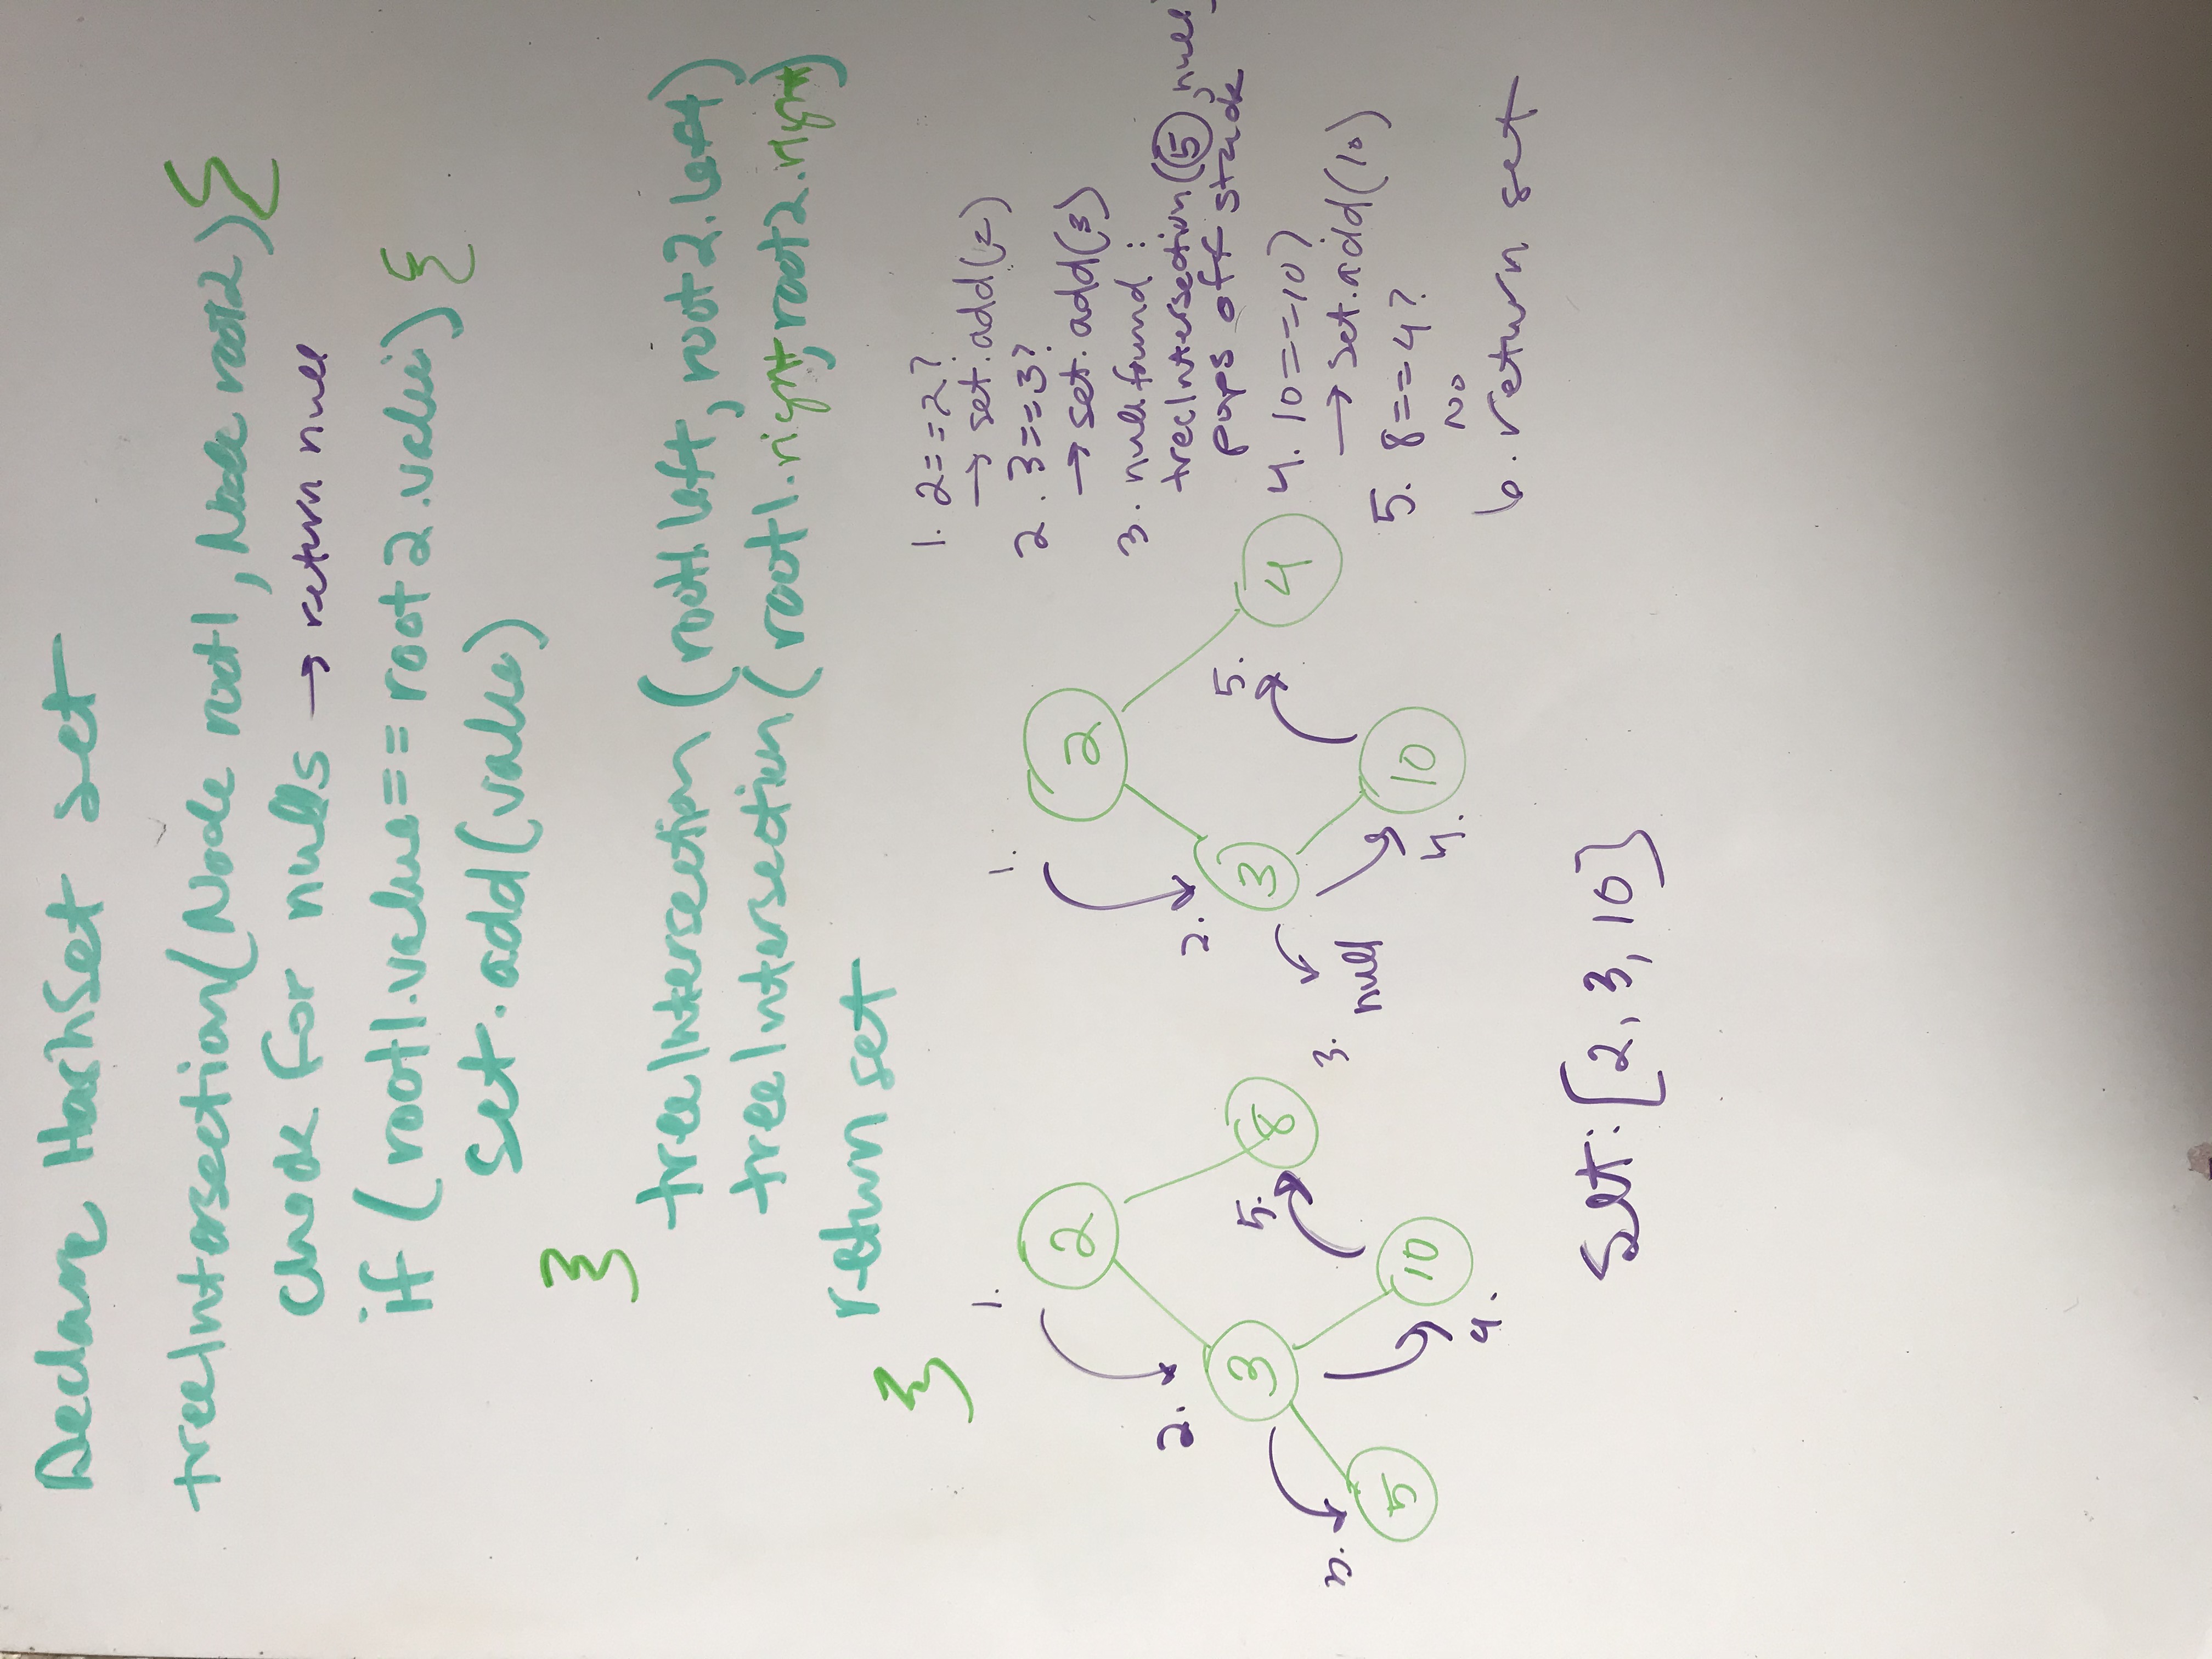 Declare HashSet set
treeIntersection(Node root1, Node root2){
check for nulls → return null
if (root1.value == root2.value){
set.add(value)
}
treeIntersection (root1.left, root2.left)
treeIntersection (root1.right, root2.right)
return set
}
1. 2==2?
→ set.add(2)
2. 3==3?
→ set.add(3)
3. null found :
treeIntersection(5, null)
pops off stack
4. 10==10?
→ set.add(10)
5. 8==4?
No
6. return set
1.
2
2.
3
5.
8
3.
5
10
4.
1.
2
2.
3
5.
4
3.
null
10
4.
set: [2, 3, 10}